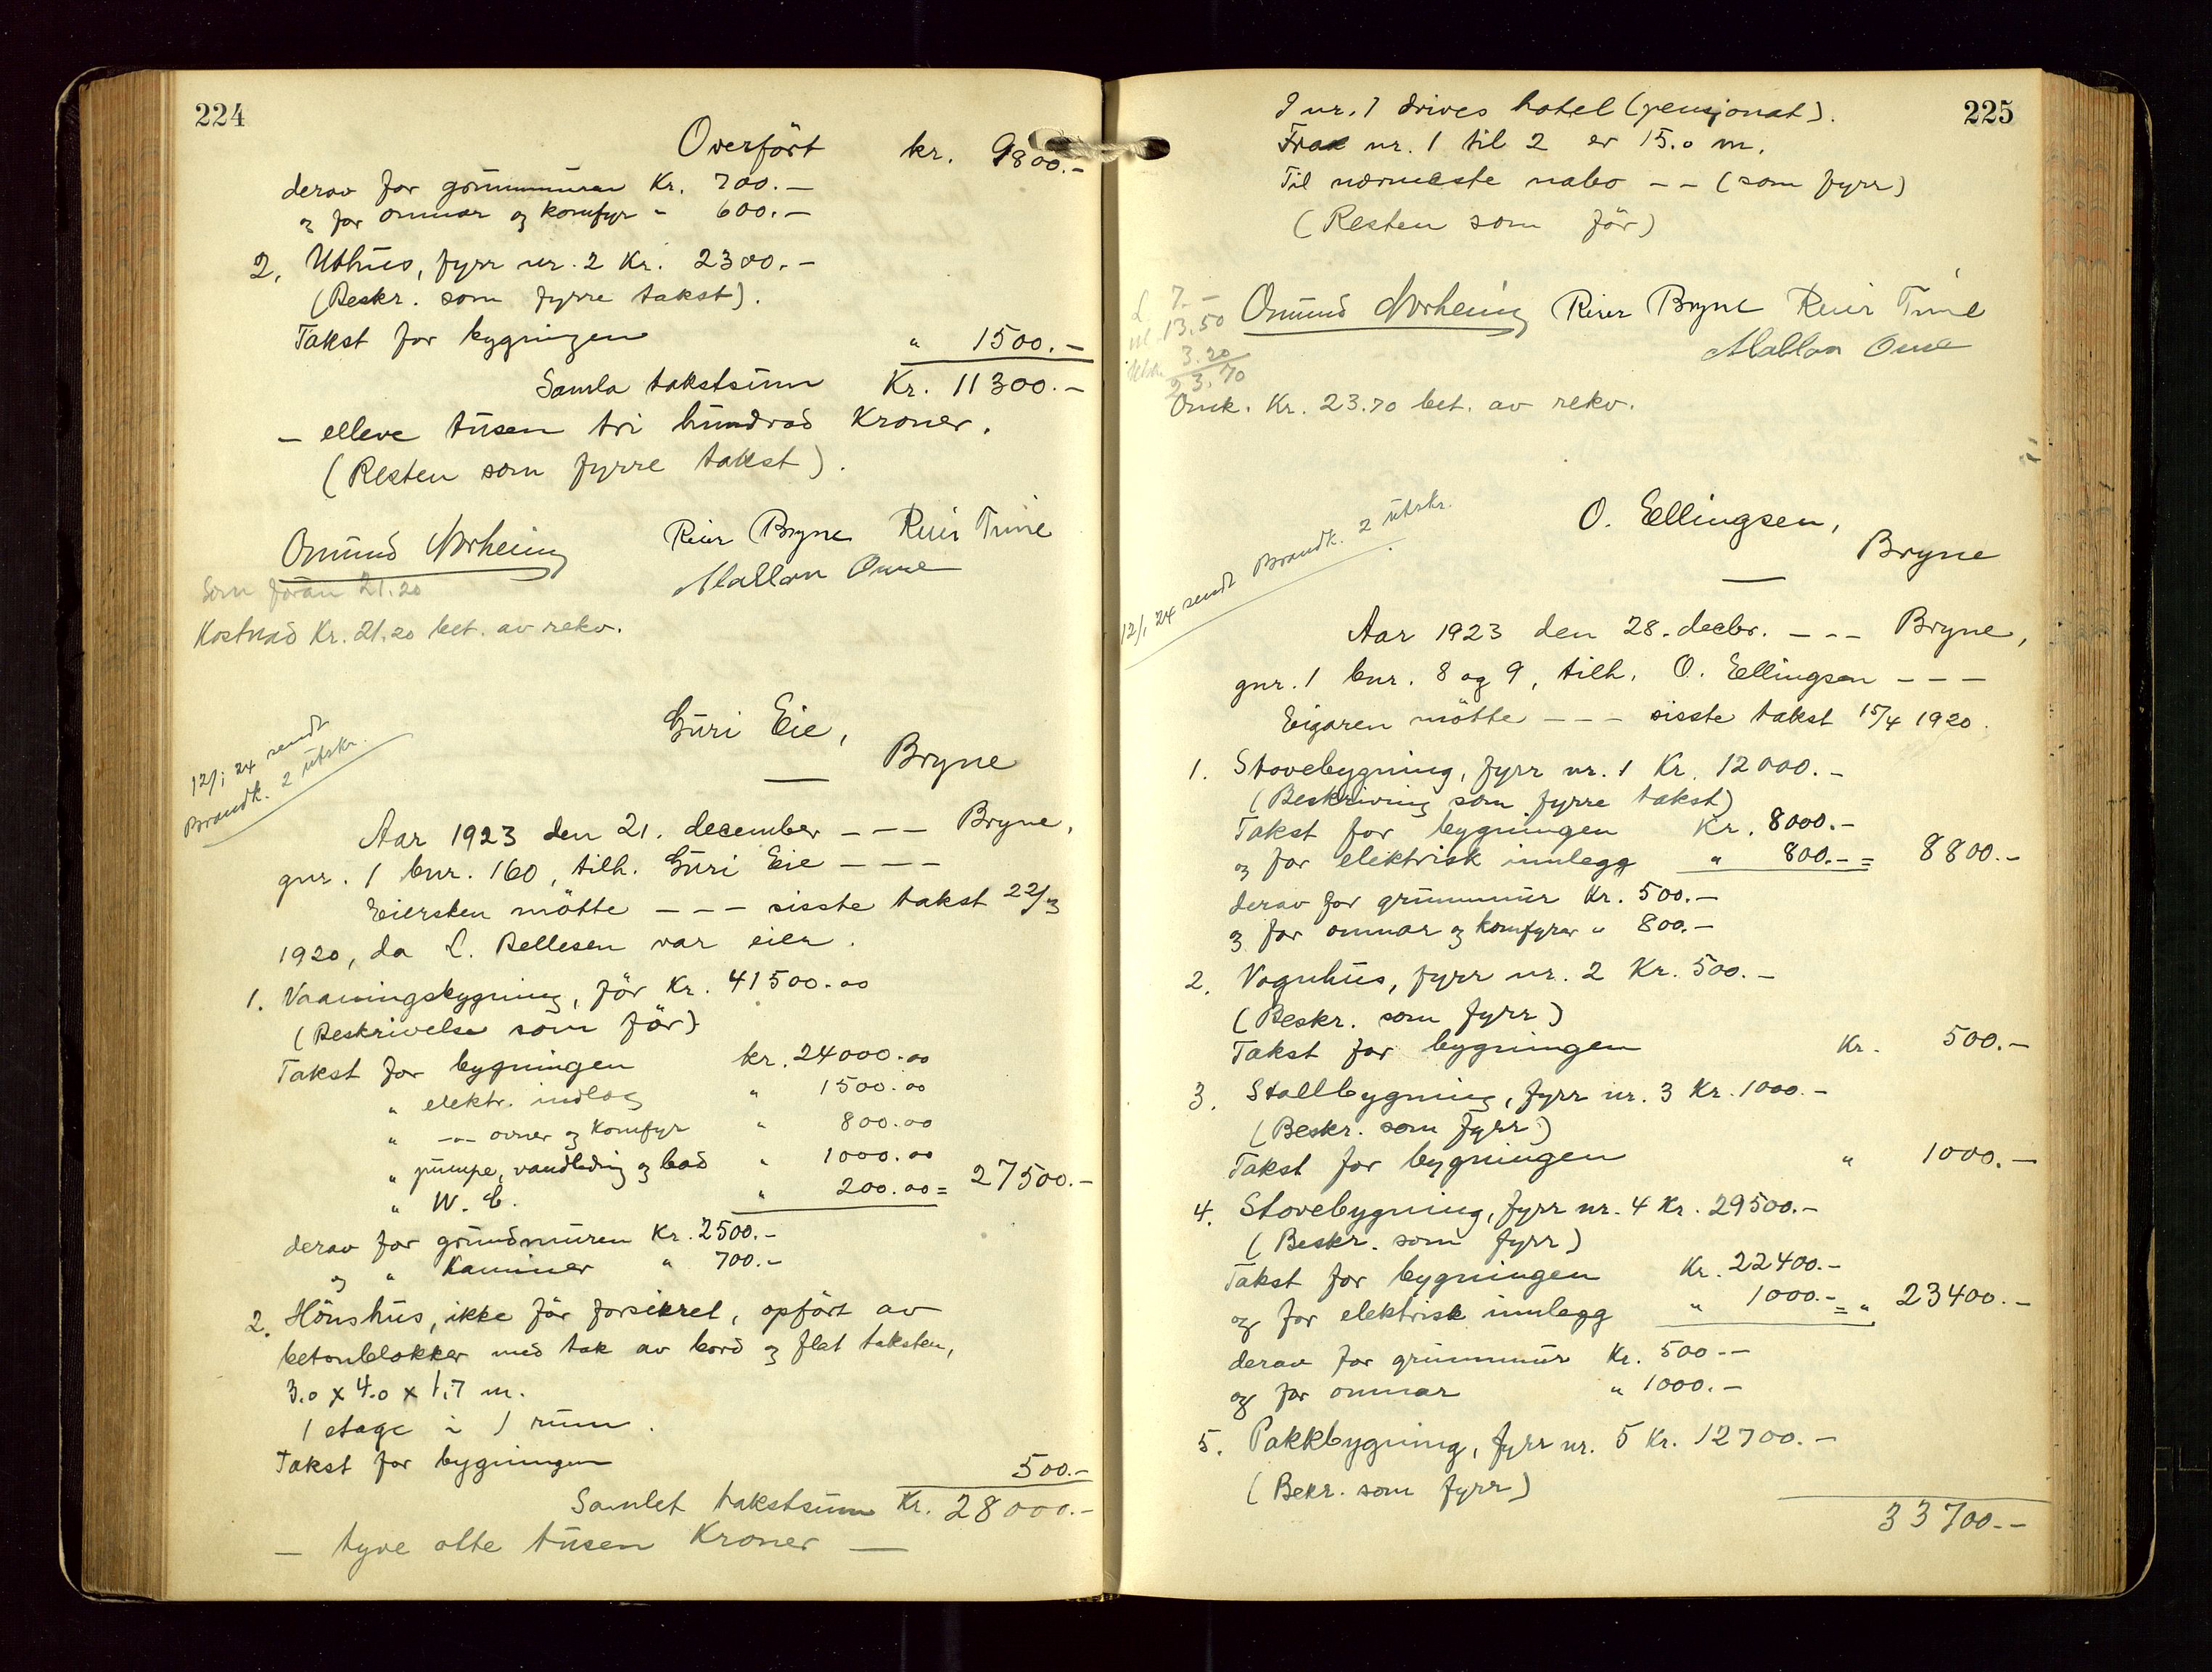 224
Overfört kr. 9800.-
derav for grunnmuren Kr. 700.-
og for omnar og komfyr " 600.-
2. Uthus, fyrr nr. 2 Kr. 2300.-
(Beskr. som fyrre takst).
Takst for bygningen " 1500.-
Samla takstsum Kr. 11300.-
- elleve tusen tri hundrad Kroner.
(Resten som fyrre takst).
Omund Norheim Reier Bryne Reier Trine
Mallan Oma
Som foran 21.20
Kostnad Kr. 21.20 bet. av rekv.
Guri Eie,
Bryne
12/1 24 sendt
Brandk. 2 utskr.
Aar 1923 den 21. december - - - Bryne,
gnr. 1 bnr. 160, tilh. Guri Eie - - -
Eiersken mötte - - - sisste takst 22/3
1920, da L. Bellesen var eier.
1. Vaaningsbygning, för Kr. 41500.00
(Beskrivelse som för)
Takst for bygningen kr. 24000.00
" elektr. indlag " 1500.00
" -"- ovner og Komfyr " 800.00
" pumpe, vandledning og bad " 1000.00
" W. C. " 200.00 = 27500.-
derav for grundmuren Kr. 2500.-
og " Kaminer " 700.-
2. Hönshus, ikke för forsikret, opfört av
betonblokker med tak av bord og flat taksten,
3.0 x 4.0 x 1.7 m.
1 etage i 1 rum.
Takst for bygningen 500.-
Samlet takstsum Kr. 28000.-
- tyve otte tusen Kroner -
225
I nr. 1 drives hotel (pensjonat).
Fraa nr. 1 til 2 er 15.0 m.
Til nærmeste nabo - - (som fyrr)
(Resten som för)
7.-
13.50
3.20
23.70
Omund Norheim Reier Bryne Reier Trine
Mallan Oma
Omk. Kr. 23.70 bet. av rekv.
12/1 24 sendt Brandk. 2 utskr.
O. Ellingsen,
Bryne
Aar 1923 den 28. decbr. - - - Bryne,
gnr. 1 bnr. 8 og 9, tilh. O. Ellingsen - - -
Eigaren mötte - - - sisste takst 15/4 1920.
1. Stovebygning, fyrr nr. 1 Kr. 12000.-
(Beskriving som fyrre takst)
Takst for bygningen Kr. 8000.-
og for elektrisk innlegg " 800.- = 8800.-
derav for grunnmur Kr. 500.-
og for omnar og komfyrar " 800.-
2. Vognhus, fyrr nr. 2 Kr. 500.-
(Beskr. som fyrr)
Takst for bygningen Kr. 500.-
3. Stallbygning, fyrr nr. 3 Kr. 1000.-
(Beskr. som fyrr)
Takst for bygningen " 1000.-
4. Stovebygning, fyrr nr. 4 Kr. 29500.-
(Beskr. som fyrr)
Takst for bygningen Kr. 22400.-
og for elektrisk innlegg " 1000.- = " 23400.-
derav for grunnmur Kr. 500.-
og for omnar " 1000.-
5. Pakkbygning, fyrr nr. 5 Kr. 12700.-
(Bekr. som fyrr)
33700.-